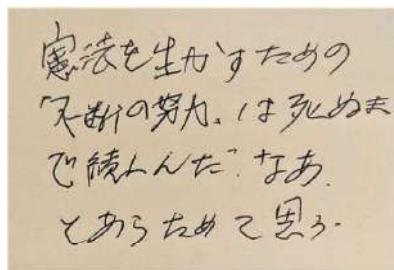 憲法を生かすための
「不断の努力」は死ぬま
で続くんだなあ
とあらためて思う.